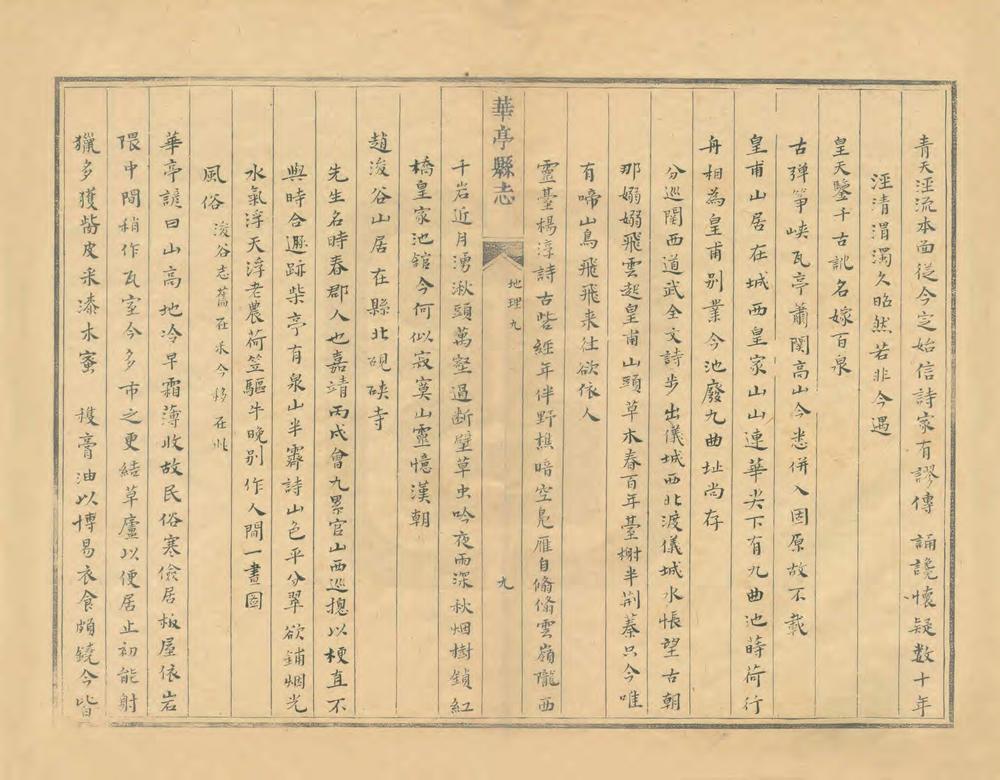 青天涇流本面從今定始信詩家有謬傳 誦讒懷疑數十年
涇清渭濁久昭然若非今遇
皇天鑒千古訛名嫁百泉
古彈箏峽瓦亭蕭関高山今悉併入固原故不載
皇甫山居在城西皇家山山連華尖下有九曲池蒔荷行
舟相為皇甫别業今池廢九曲址尚存
分巡関西道武全文詩步出儀城西北渡儀城水悵望古朝
那嫋嫋飛雲起皇甫山頭草木春百年臺榭半荆蓁只今唯
有啼山鳥飛飛来往欲依人
華亭縣志
地理九
九
靈臺楊淳詩古砦経年伴野樵暗空鳬雁自翛翛雲嶺隴西
千岩近月湧湫頭萬壑過断壁草虫吟夜雨深秋烟樹鎖紅
橋皇家池舘今何似寂寞山靈憶漢朝
趙浚谷山居 在縣北硯硤寺
先生名時春郡人也嘉靖丙戌會九累官山西巡摠以梗直不
與時合遯跡柴亭有泉山半霽詩山色平分翠欲鋪烟光
水氣浮天浮老農荷笠驅牛晚别作人間一畫圖
風俗 浚谷志舊在末今移在此
華亭諺曰山高地冷早霜薄收故民俗寒儉居板屋依岩
隈中間稍作瓦室今多市之更結草廬以便居止初能射
獵多獲麝皮采漆木蜜 穫膏油以博易衣食頗饒今皆